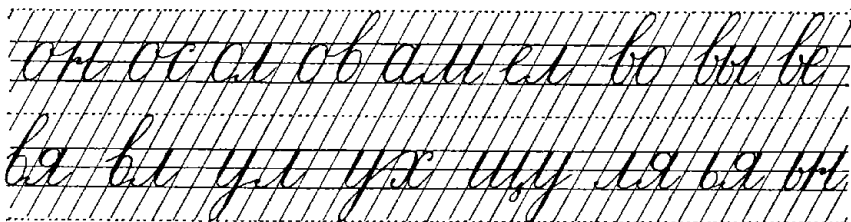 он ос ол ов ам ел во вы ве
вя вл ул ух щу ля ья ън